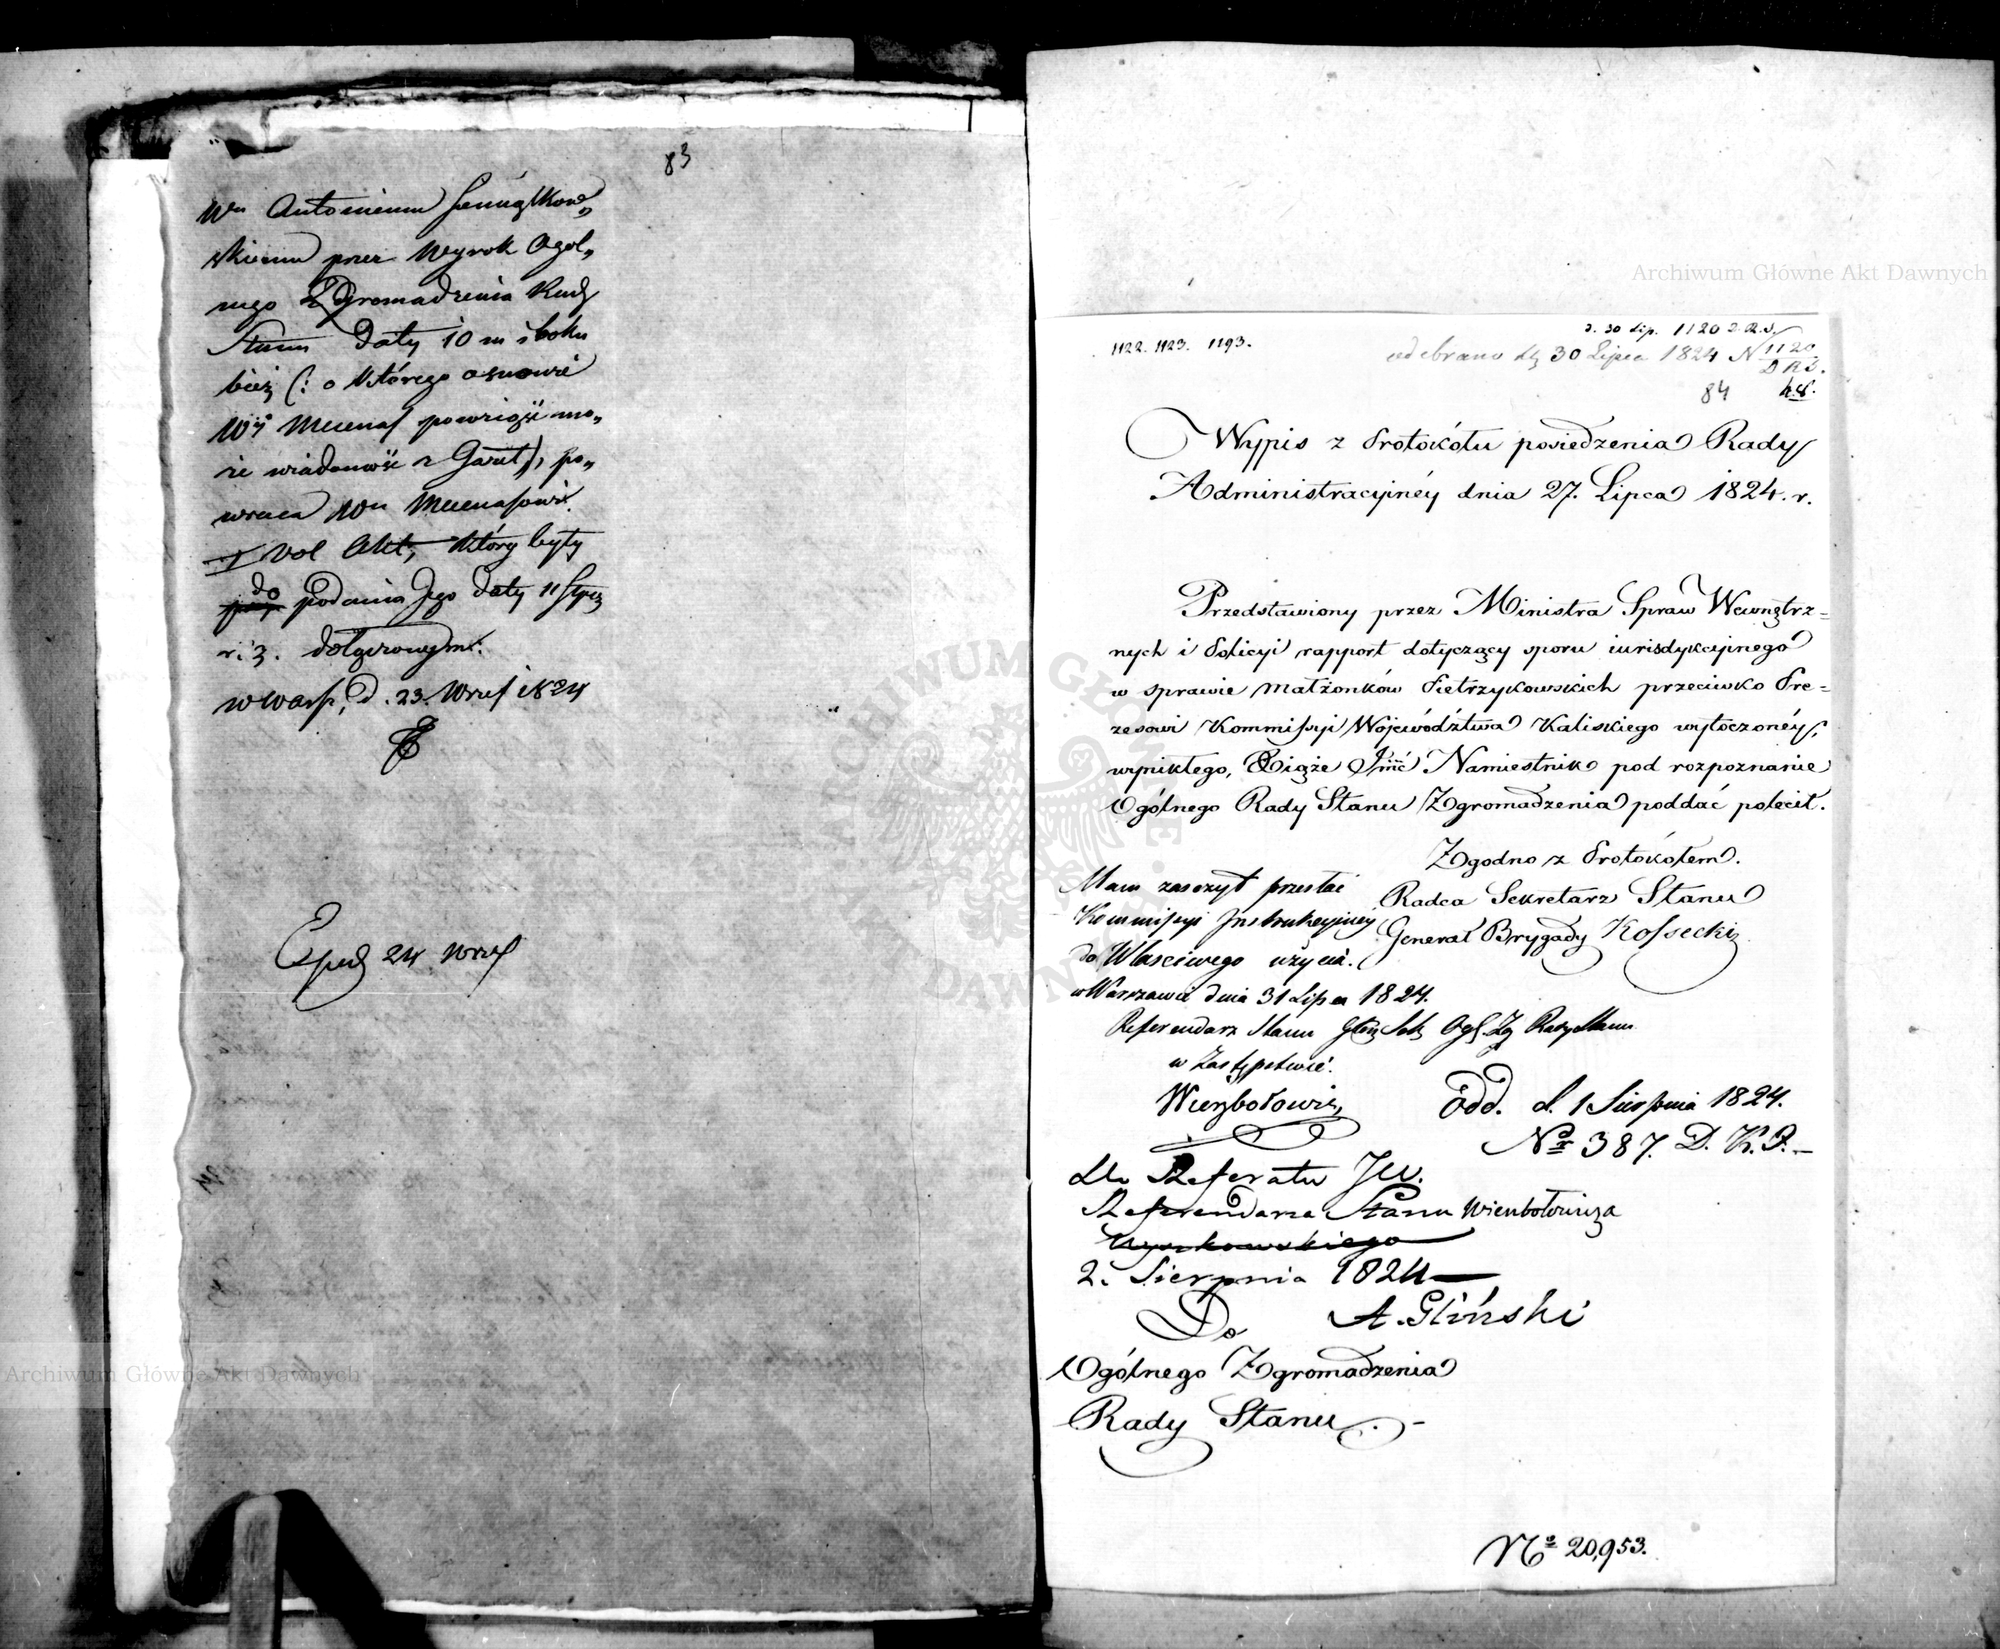 83
Wu Antoniemu
skiemu przez Wyrok Ogól„
nego Zgromadzenia Rady
Stanu daty 10 m i roku
bież (: o którego osnowie
W Mecenas powziąść mo„
że wiadomość z Gazet), po„
wraca Wu Mecenasowi
1 vol Akt, który były
do podania Jego daty 11 Stycz
r. z. dołączonym.
w Warsz, d. 23. Wrześ 1824
Exped 24 Wrześ
d. 30 Lip. 1120 D.R.S.
1122. 1123. 1193.
odebrano d 30 Lipca 1824 N 1120
D R S.
84
Wypis z Protokółu posiedzenia Rady
Administracyjnéy dnia 27. Lipca 1824. r.
Przedstawiony przez Ministra Spraw Wewnętrz=
nych i Policyi rapport dotyczący sporu iurisdykcyjnego
w sprawie małżonków Pietrzykowskich przeciwko Pre=
zesowi Kommissyi Województwa Kaliskiego wytoczonéy,
wynikłego, Xiąże Jmć Namiestnik pod rozpoznanie
Ogólnego Rady Stanu Zgromadzenia poddać polecił.
Zgodno z Protokółem.
Radca Sekretarz Stanu
Generał Brygady Kossecki
Mam zaszczyt przesłać
Kommissyi Instrukcyjney
do Właściwego użycia.
w Warszawie dnia 31 Lipca 1824.
Referendarz Stanu Głów Sek Ogl. Zg Rady Stanu
w Zastępstwie.
Wierzbołowicz
Odd. d. 1 Sierpnia 1824.
Nr 387. D. K. P.
Do Referatu JW.
Referendarza Stanu Wierzbołowicza
Wyszkowskiego
2. Sierpnia 1824
A. Gliński
Do
Ogólnego Zgromadzenia
Rady Stanu.
No 20,953.
Archiwum Główne Akt Dawnych
Archiwum Główne Akt Dawnych
ARCHIWUM GŁÓWNE AKT DAWNYCH